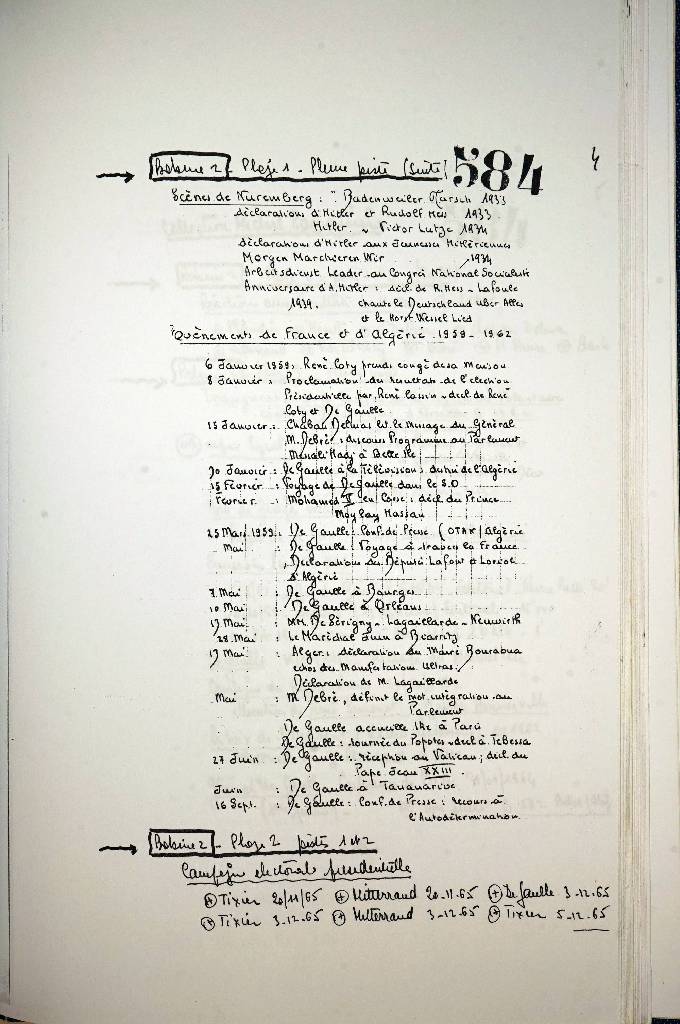 4
Bobine 2 - Plage 1 - Pleine piste (suite) 584
Scènes de Nuremberg : " Badenweiler Marsch 1933
déclarations d'Hitler et Rudolf Hess 1933
Hitler " Victor Lutze 1934
déclarations d'Hitler aux Jeunesses Hitlériennes
Morgen Marchieren Wir 1934
Arbeitsdienst Leader au Congrès National Socialiste
Anniversaire d'A. Hitler : décl. de R. Hess - La foule
1939. chante le Deutschland Uber Alles
et le Horst Wessel Lied
Evènements de France et d'Algérie - 1959 - 1962
6 Janvier 1959 : René Coty prends congé de sa Maison
8 Janvier : Proclamation des résultats de l'élection
Présidentielle par René Cassin - décl. de René
Coty et De Gaulle
15 Janvier : Chaban Delmas lit le message du Général
M. Debré : discours Programme au Parlement
Messali Hadj à Belle Ile
30 Janvier : De Gaulle à la Télévision : destin de l'Algérie
15 Février : Voyage de De Gaulle dans le S.O
Février : Mohamed V en Corse : décl. du Prince
Moulay Hassan
25 Mars 1959 : De Gaulle Conf. de Presse (OTAN) Algérie
Mai : De Gaulle Voyage à travers la France
Déclarations du Député Lafont à Loriol
d'Algérie
7 Mai : De Gaulle à Bourges
10 Mai : De Gaulle à Orléans
13 Mai : MM. De Sérigny - Lagaillarde - Neuwirth
28 Mai : Le Maréchal Juin à Biarritz
13 Mai : Alger : déclaration du Maire Bouraboua
échos des Manifestations Ultras.
Déclaration de M. Lagaillarde
Mai : M. Debré, définit le mot intégration au
Parlement
De Gaulle accueille Ike à Paris
De Gaulle : tournée du Popotes - décl. à Tebessa
27 Juin : De Gaulle : réception au Vatican ; décl. du
Pape Jean XXIII.
Juin : De Gaulle à Tananarive
16 Sept. : De Gaulle : Conf. de Presse : recours à
l'Autodétermination
Bobine 2 - Plage 2 pistes 1 et 2
Campagne électorale présidentielle
Tixier 20/11/65 Mitterrand 20-11-65 De Gaulle 3-12-65
Tixier 3-12-65 Mitterrand 3-12-65 Tixier 5-12-65